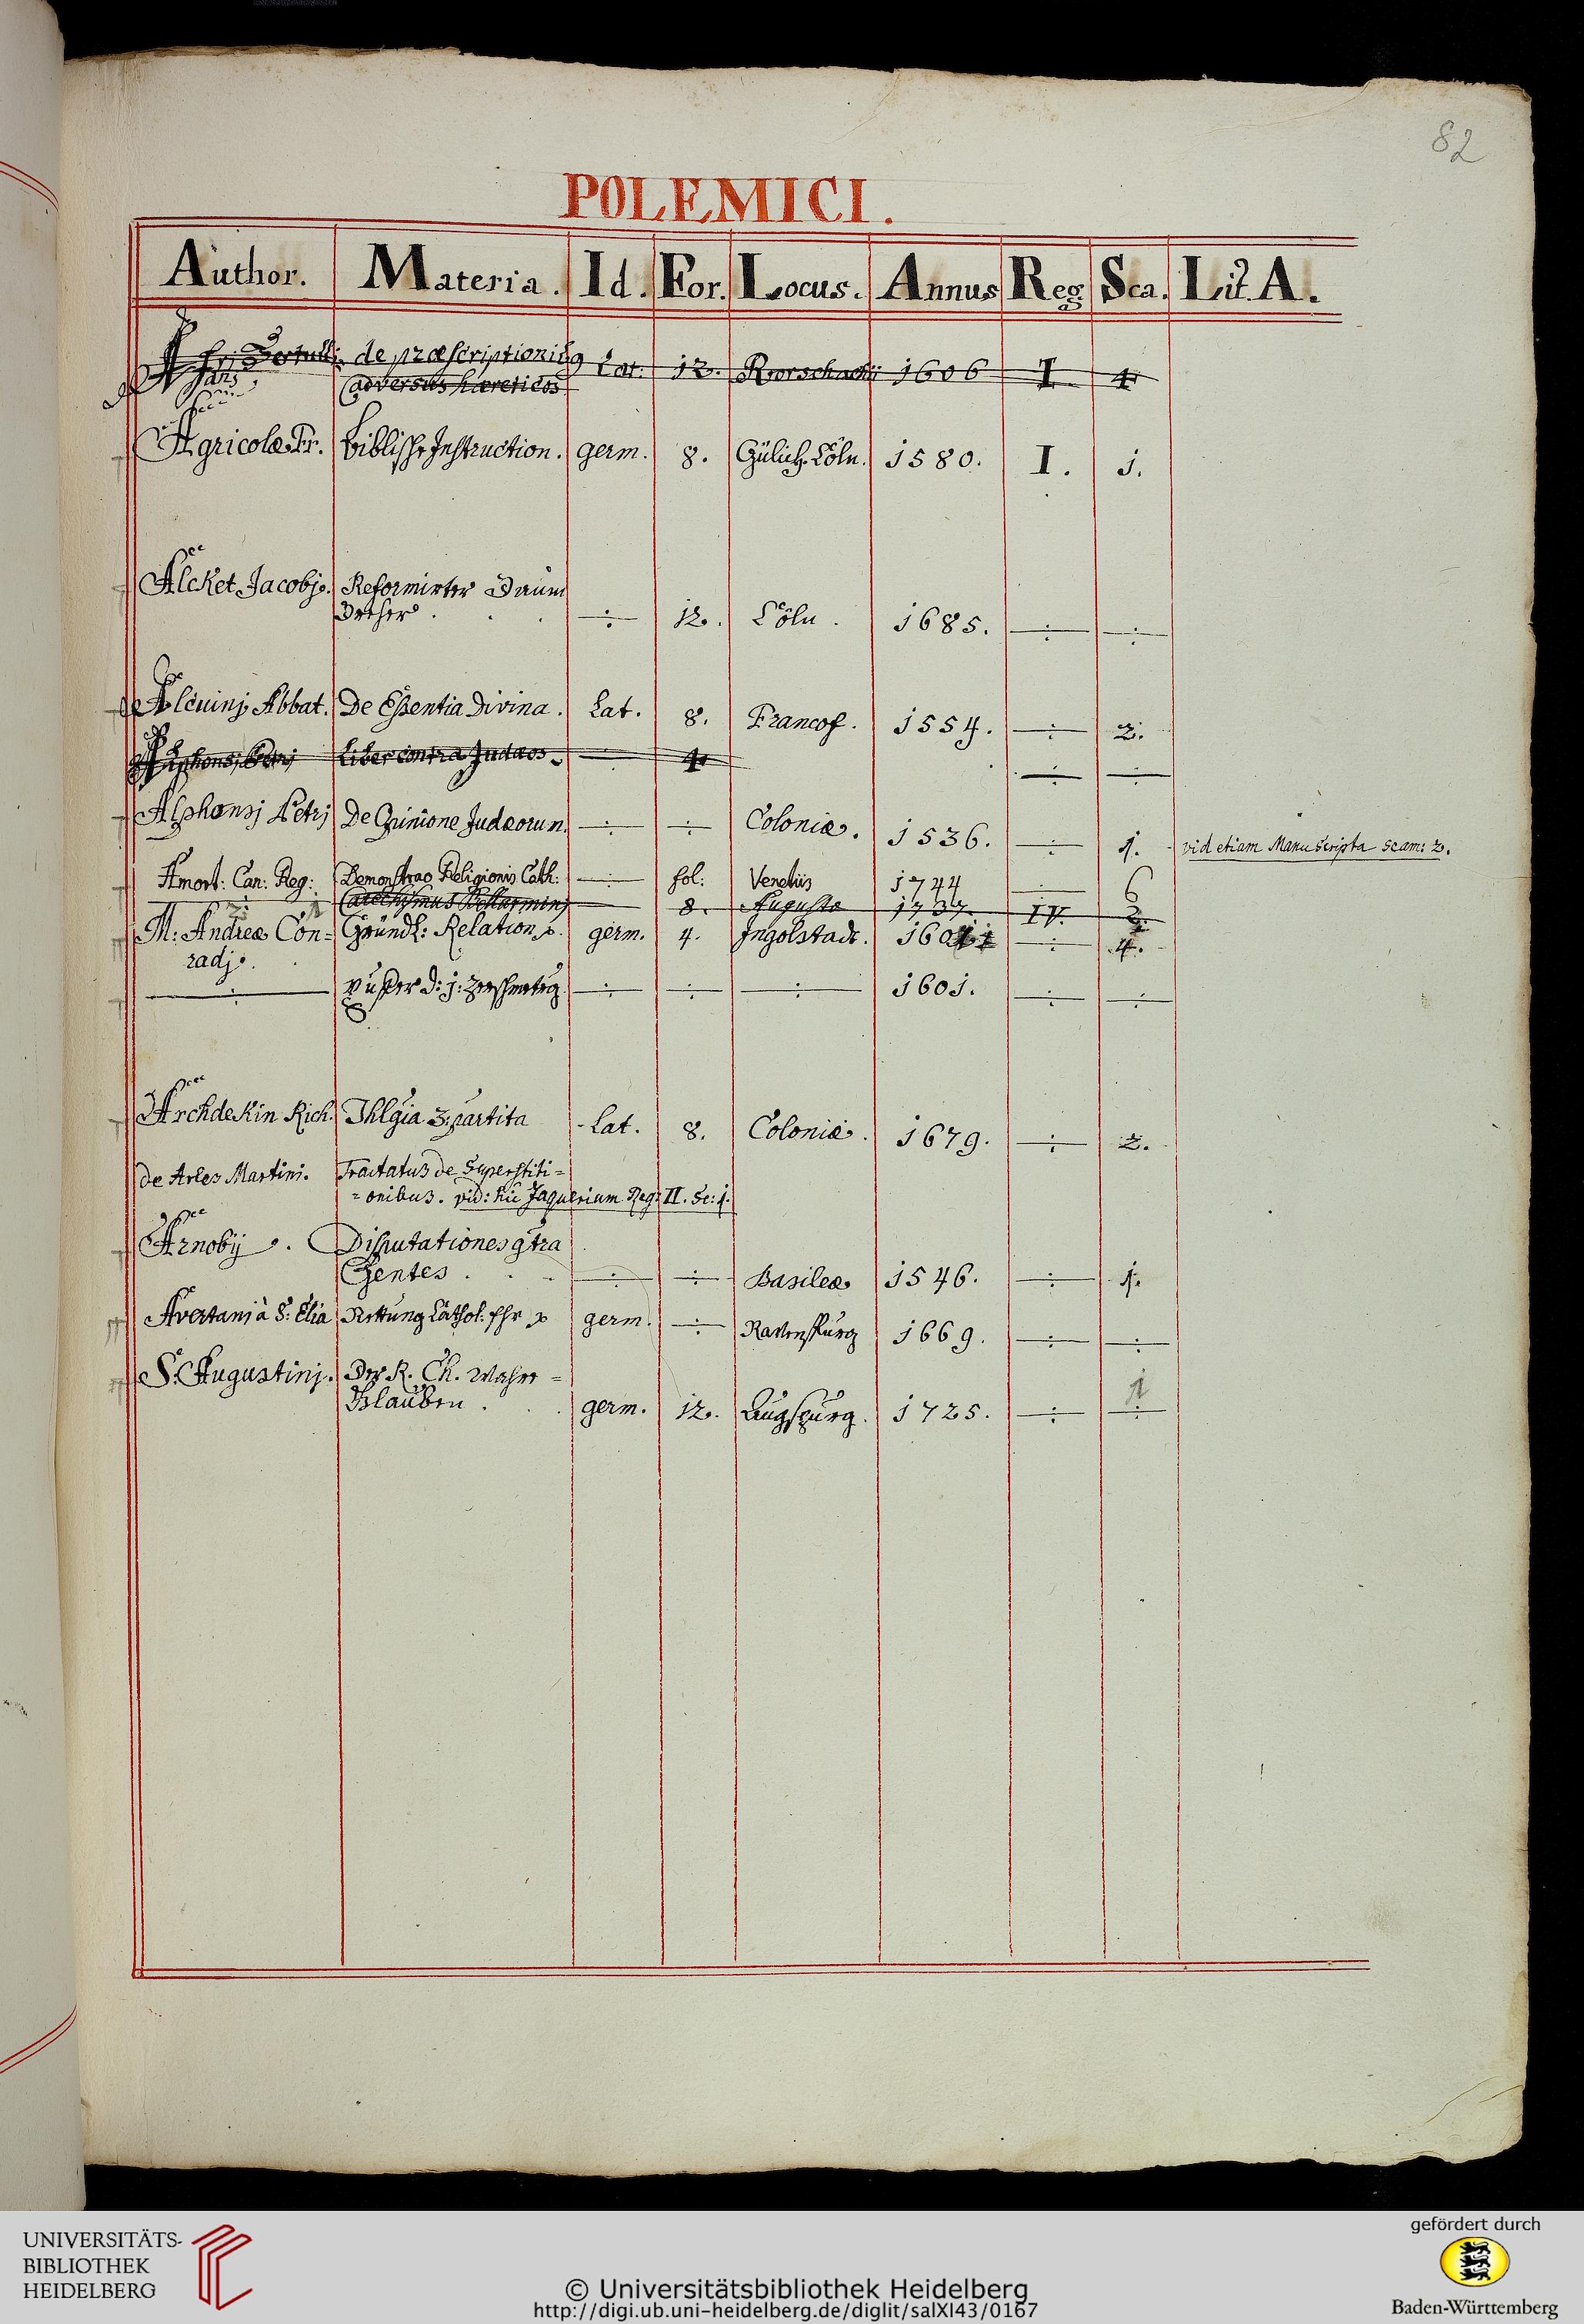 82
POLEMICI.
Author. Materia. Id. For. Locus. Annus Reg Sca. Lit. A.
de præscriptionib9 Lat. 12. Rorschachij 1606 I 4
adversus hæreticos
Agricolæ Fr. Biblische Instruction. germ. 8. Gülich. Cöln. 1580. I. 1.
Alcket Jacobj. Reformirter Daum
Dreher. ÷ 12. Cöln. 1685. ÷ ÷
Alcuinj Abbat. De Eßentia Divina. Lat. 8. Francof. 1554. ÷ 2.
Alphonsj Petrj Liber contra Judæos. ÷ 4 ÷ ÷
Alphonsj Petrj De Opinione Judæorum. ÷ ÷ Coloniæ. 1536. ÷ 1. vid etiam Manuscripta Scam: 2.
Amort: Can: Reg: Demonstrao Religionis Cath: ÷ fol: Venetiis 1744 ÷ 6
÷ Catechismus Bellarminj 8. Augustæ 1737. IV. 2.
M: Andreæ Con= Gründl: Relation germ. 4. Ingolstadt. 1601 ÷ 4.
radj.
÷ ÷ ÷ ÷ 1601. ÷ ÷
Archdekin Rich. Thlgia 3partita Lat. 8. Coloniæ. 1679. ÷ 2.
de Arles Martini. Tractatus de Superstiti=
=onibus. vid: hic Jaquerium Reg: II. Sc: 1.
Arnobij. Disputationes gtra
Gentes. ÷ ÷ Basileæ 1546. ÷ 1.
Avertanj à S: Elia Rettung Cathol. germ. ÷ Ravenspurg 1669. ÷ ÷
S. Augustinj. Der R. Ch. Wahre=
Glauben. germ. 12. Augspurg. 1725. ÷ ÷
1
UNIVERSITÄTS-
BIBLIOTHEK
HEIDELBERG
© Universitätsbibliothek Heidelberg
http://digi.ub.uni-heidelberg.de/diglit/salXI43/0167
gefördert durch
Baden-Württemberg